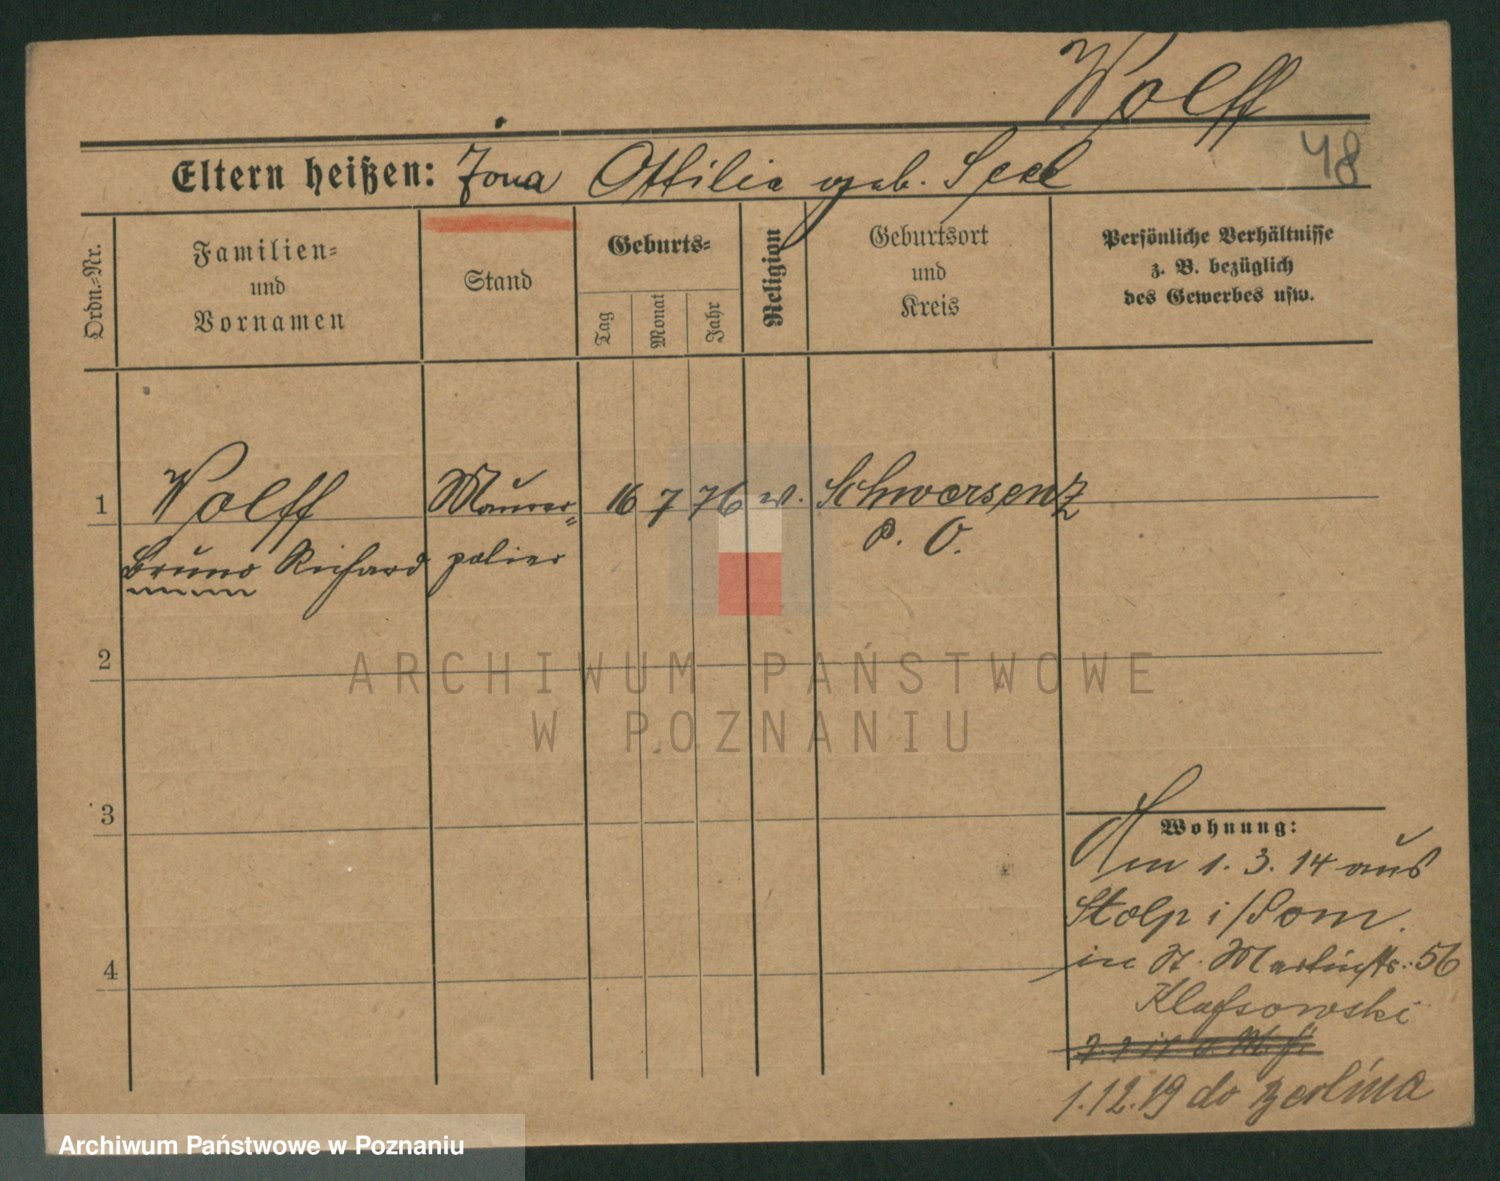 Wolff
48
Eltern heißen: Żona Ottilie geb. Seel
Ordn.-Nr.
Familien-
und
Vornamen
Stand
Geburts-
Tag
Monat
Jahr
Religion
Geburtsort
und
Kreis
Persönliche Verhältnisse
z. B. bezüglich
des Gewerbes usw.
1 Wolff Maurer- 16 7 76 ev. Schwersenz
Bruno Richard polier P. O.
2
ARCHIWUM PAŃSTWOWE
W POZNANIU
3
Wohnung:
Am 1. 3. 14 aus
Stolp i/Pom.
4
in St. Martinstr. 56
1.12.19 do Berlina
Archiwum Państwowe w Poznaniu